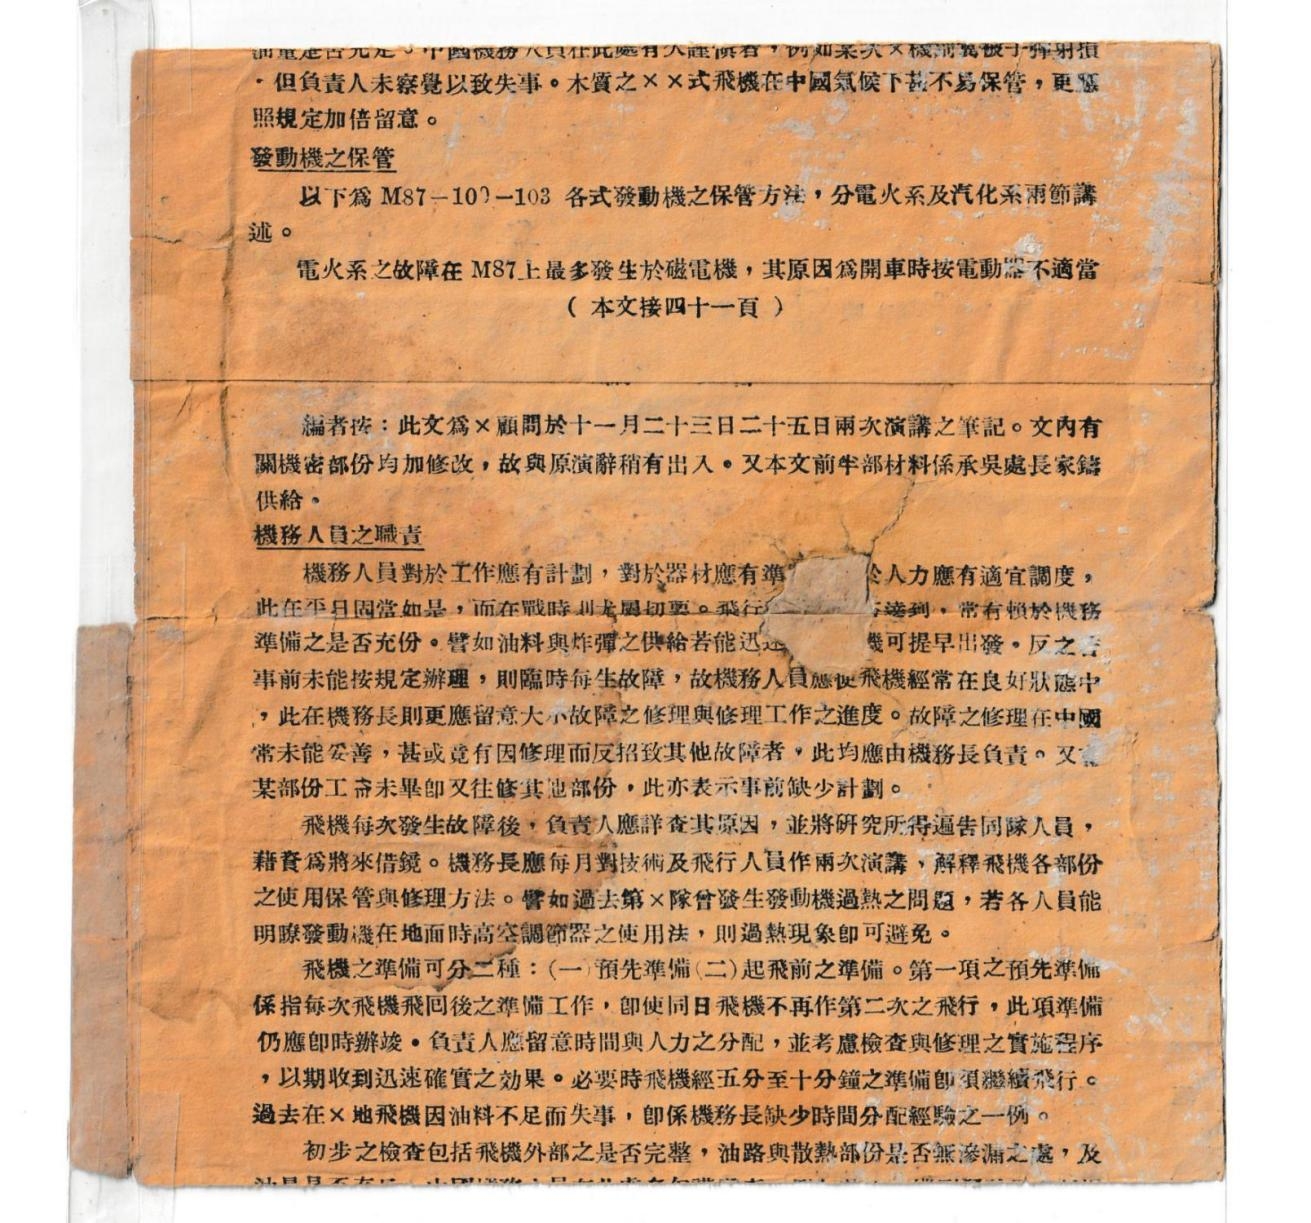 油量是否充足。中國機務人員在此處有欠謹慎者，例如某次×機油箱被子彈射損
，但負責人未察覺以致失事。木質之××式飛機在中國氣候下甚不易保管，更應
照規定加倍留意。
發動機之保管
以下爲 M87—100—103 各式發動機之保管方法，分電火系及汽化系兩節講
述。
電火系之故障在 M87上最多發生於磁電機，其原因爲開車時按電動器不適當
（ 本文接四十一頁 ）
編者按：此文爲×顧問於十一月二十三日二十五日兩次演講之筆記。文內有
關機密部份均加修改，故與原演辭稍有出入。又本文前半部材料係承吳處長家鑄
供給。
機務人員之職責
機務人員對於工作應有計劃，對於器材應有準 於人力應有適宜調度，
此在平日固當如是，而在戰時則尤屬切要。飛行 達到，常有賴於機務
準備之是否充份。譬如油料與炸彈之供給若能迅速 機可提早出發。反之若
事前未能按規定辦理，則臨時每生故障，故機務人員應使飛機經常在良好狀態中
，此在機務長則更應留意大小故障之修理與修理工作之進度。故障之修理在中國
常未能妥善，甚或竟有因修理而反招致其他故障者，此均應由機務長負責。又當
某部份工作未畢卽又往修其他部份，此亦表示事前缺少計劃。
飛機每次發生故障後，負責人應詳查其原因，並將研究所得遍告同隊人員，
藉資爲將來借鏡。機務長應每月對技術及飛行人員作兩次演講，解釋飛機各部份
之使用保管與修理方法。譬如過去第×隊曾發生發動機過熱之問題，若各人員能
明瞭發動機在地面時高空調節器之使用法，則過熱現象卽可避免。
飛機之準備可分二種：(一)預先準備(二)起飛前之準備。第一項之預先準備
係指每次飛機飛回後之準備工作，卽使同日飛機不再作第二次之飛行，此項準備
仍應卽時辦竣。負責人應留意時間與人力之分配，並考慮檢查與修理之實施程序
，以期收到迅速確實之効果。必要時飛機經五分至十分鐘之準備卽須繼續飛行。
過去在×地飛機因油料不足而失事，卽係機務長缺少時間分配經驗之一例。
初步之檢查包括飛機外部之是否完整，油路與散熱部份是否無滲漏之處，及